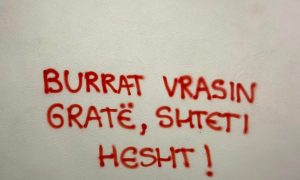 BURRAT VRASIN
GRATË, SHTETI
HESHT!